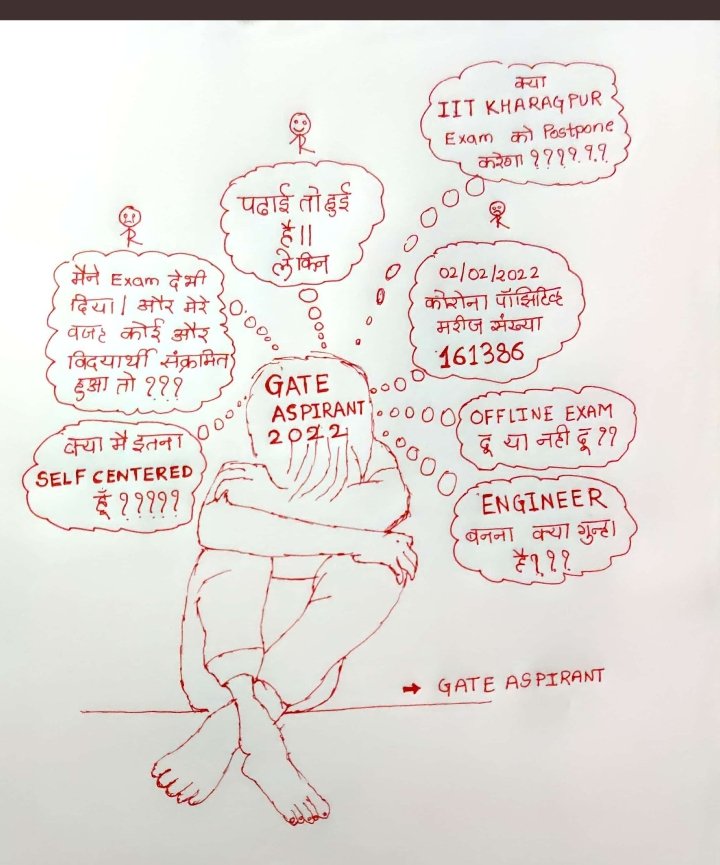 क्या
IIT KHARAGPUR
Exam को Postpone
करेगा ??????
पढाई तो हुई
है।।
लेकिन
मैने Exam दे भी
दिया। और मेरे
वजह कोई और
विद्यार्थी संक्रमित
हुआ तो ???
02/02/2022
कोरोना पॉझिटिव्ह
मरीज संख्या
161386
GATE
ASPIRANT
2022
OFFLINE EXAM
दू या नही दू ??
क्या मै इतना
SELF CENTERED
हूँ ?????
ENGINEER
बनना क्या गुन्हा
है???
→ GATE ASPIRANT